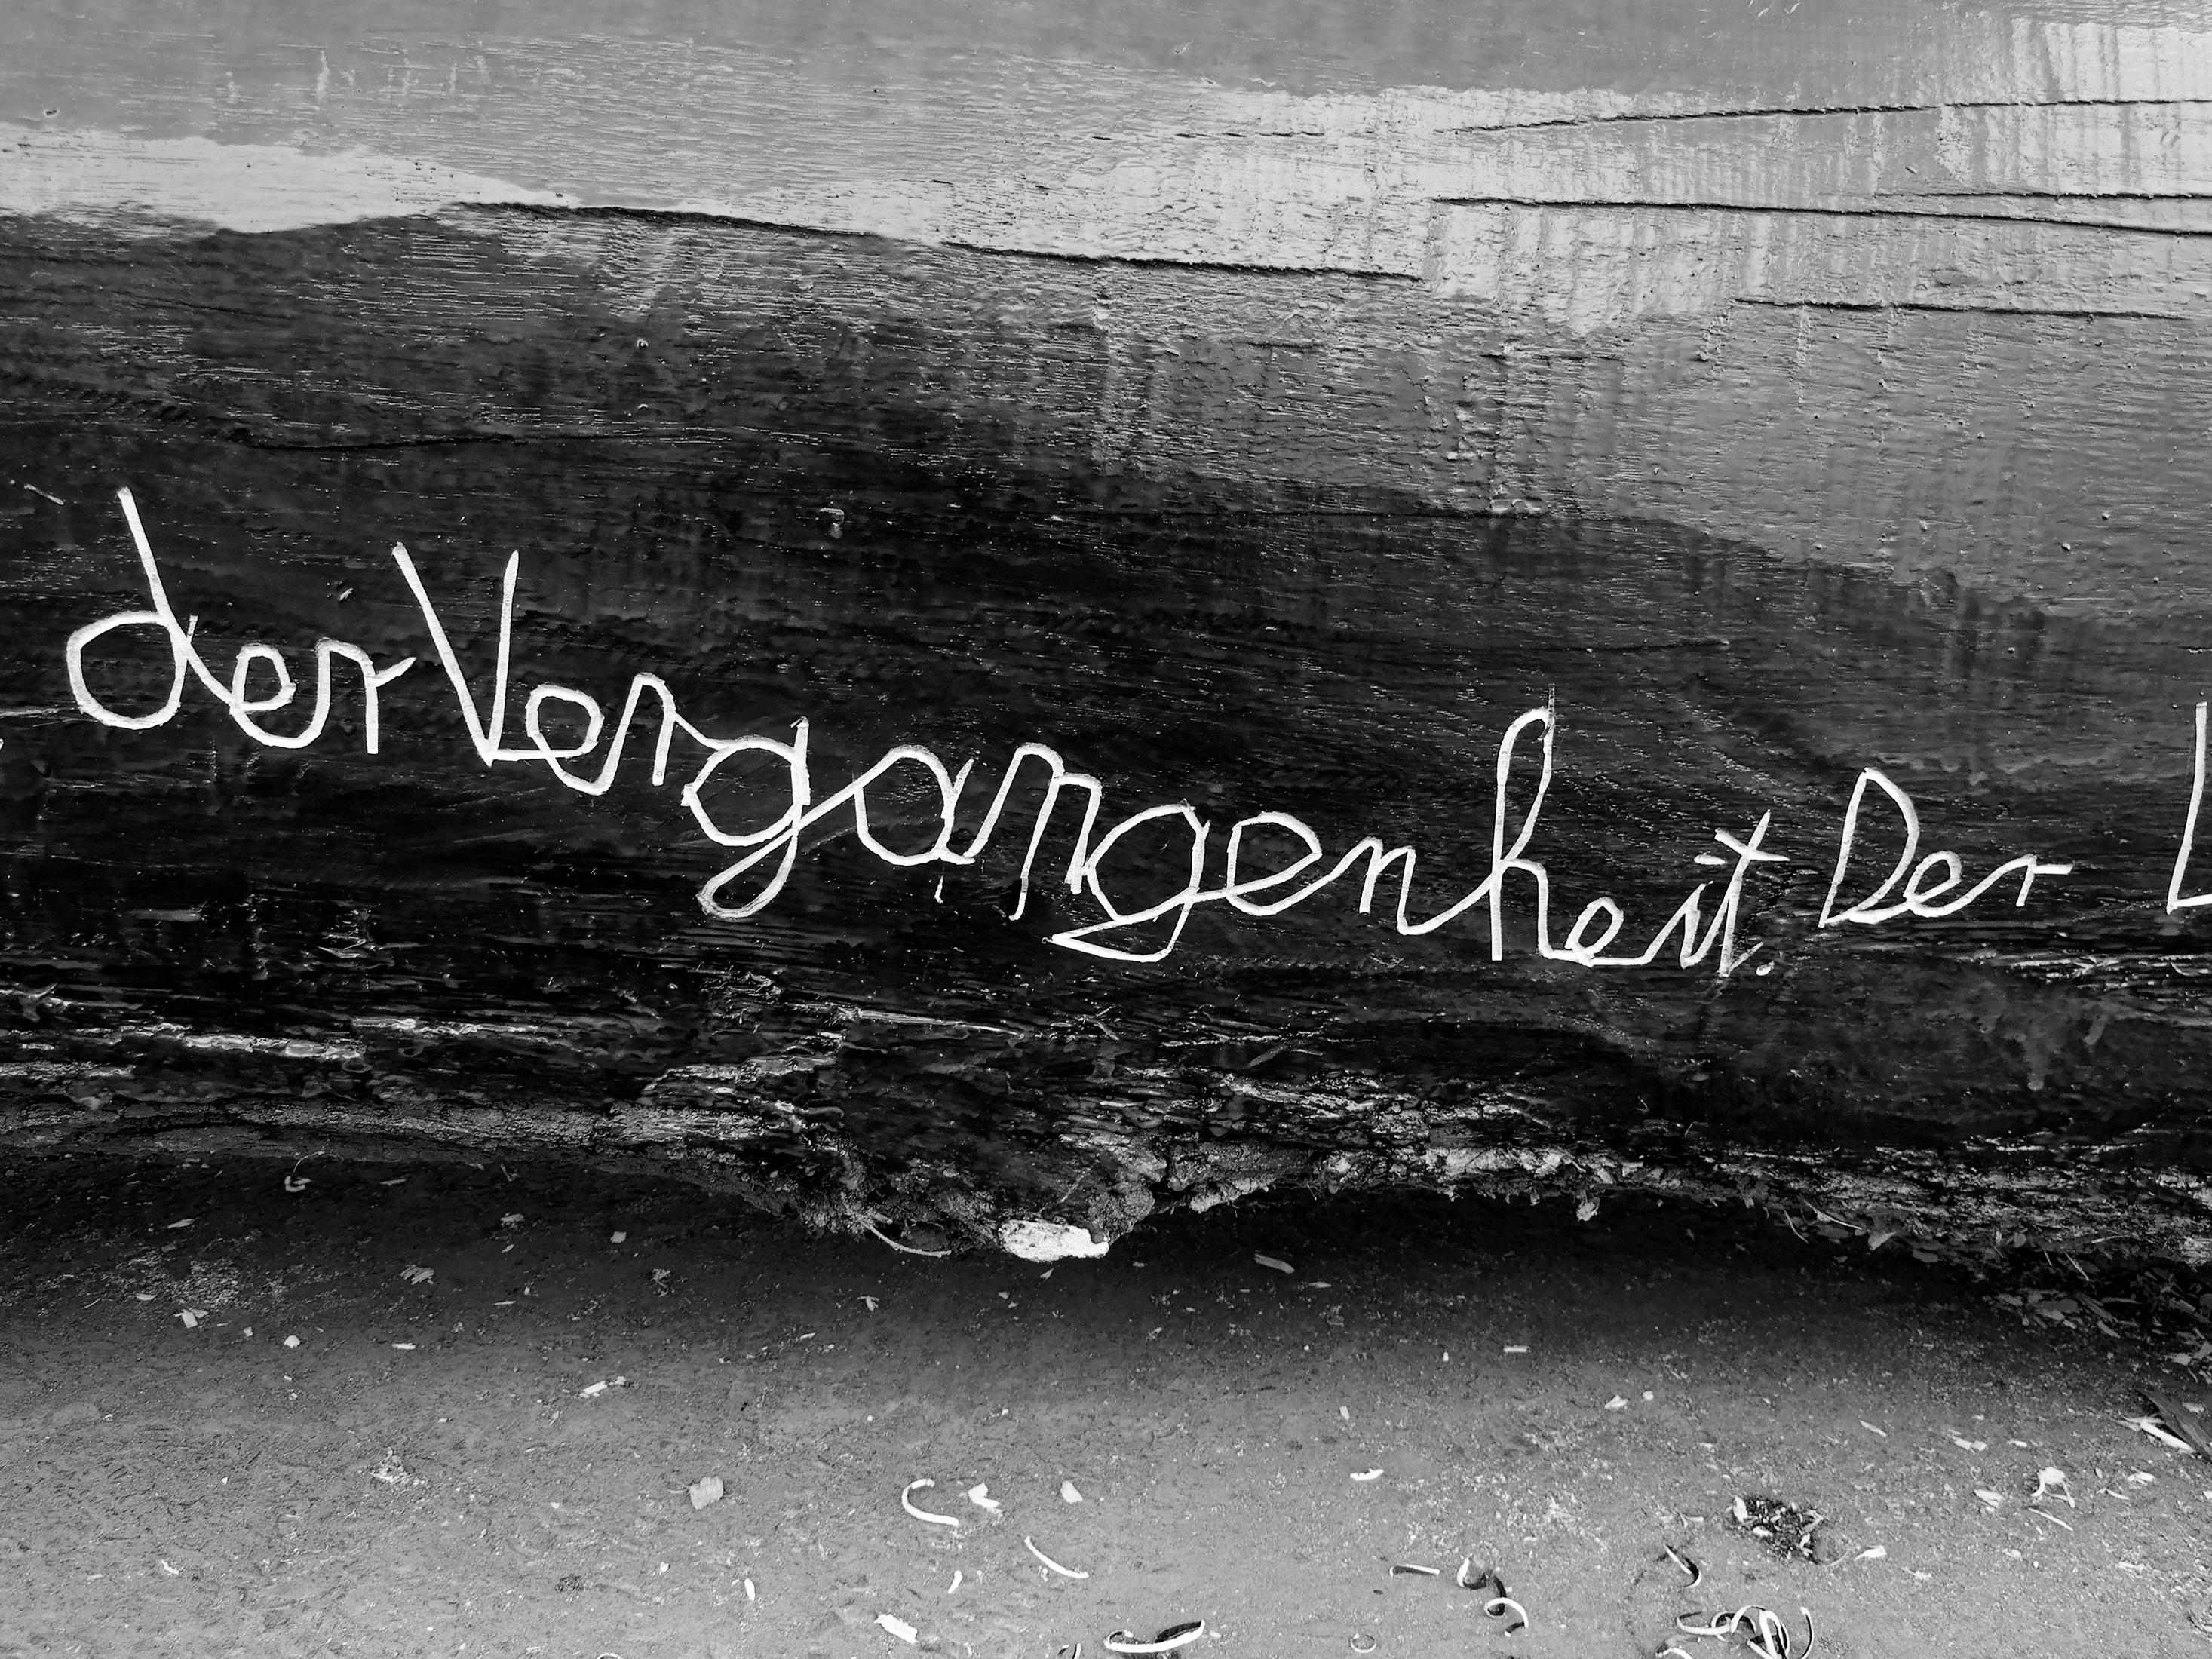 der Vergangenheit. Der